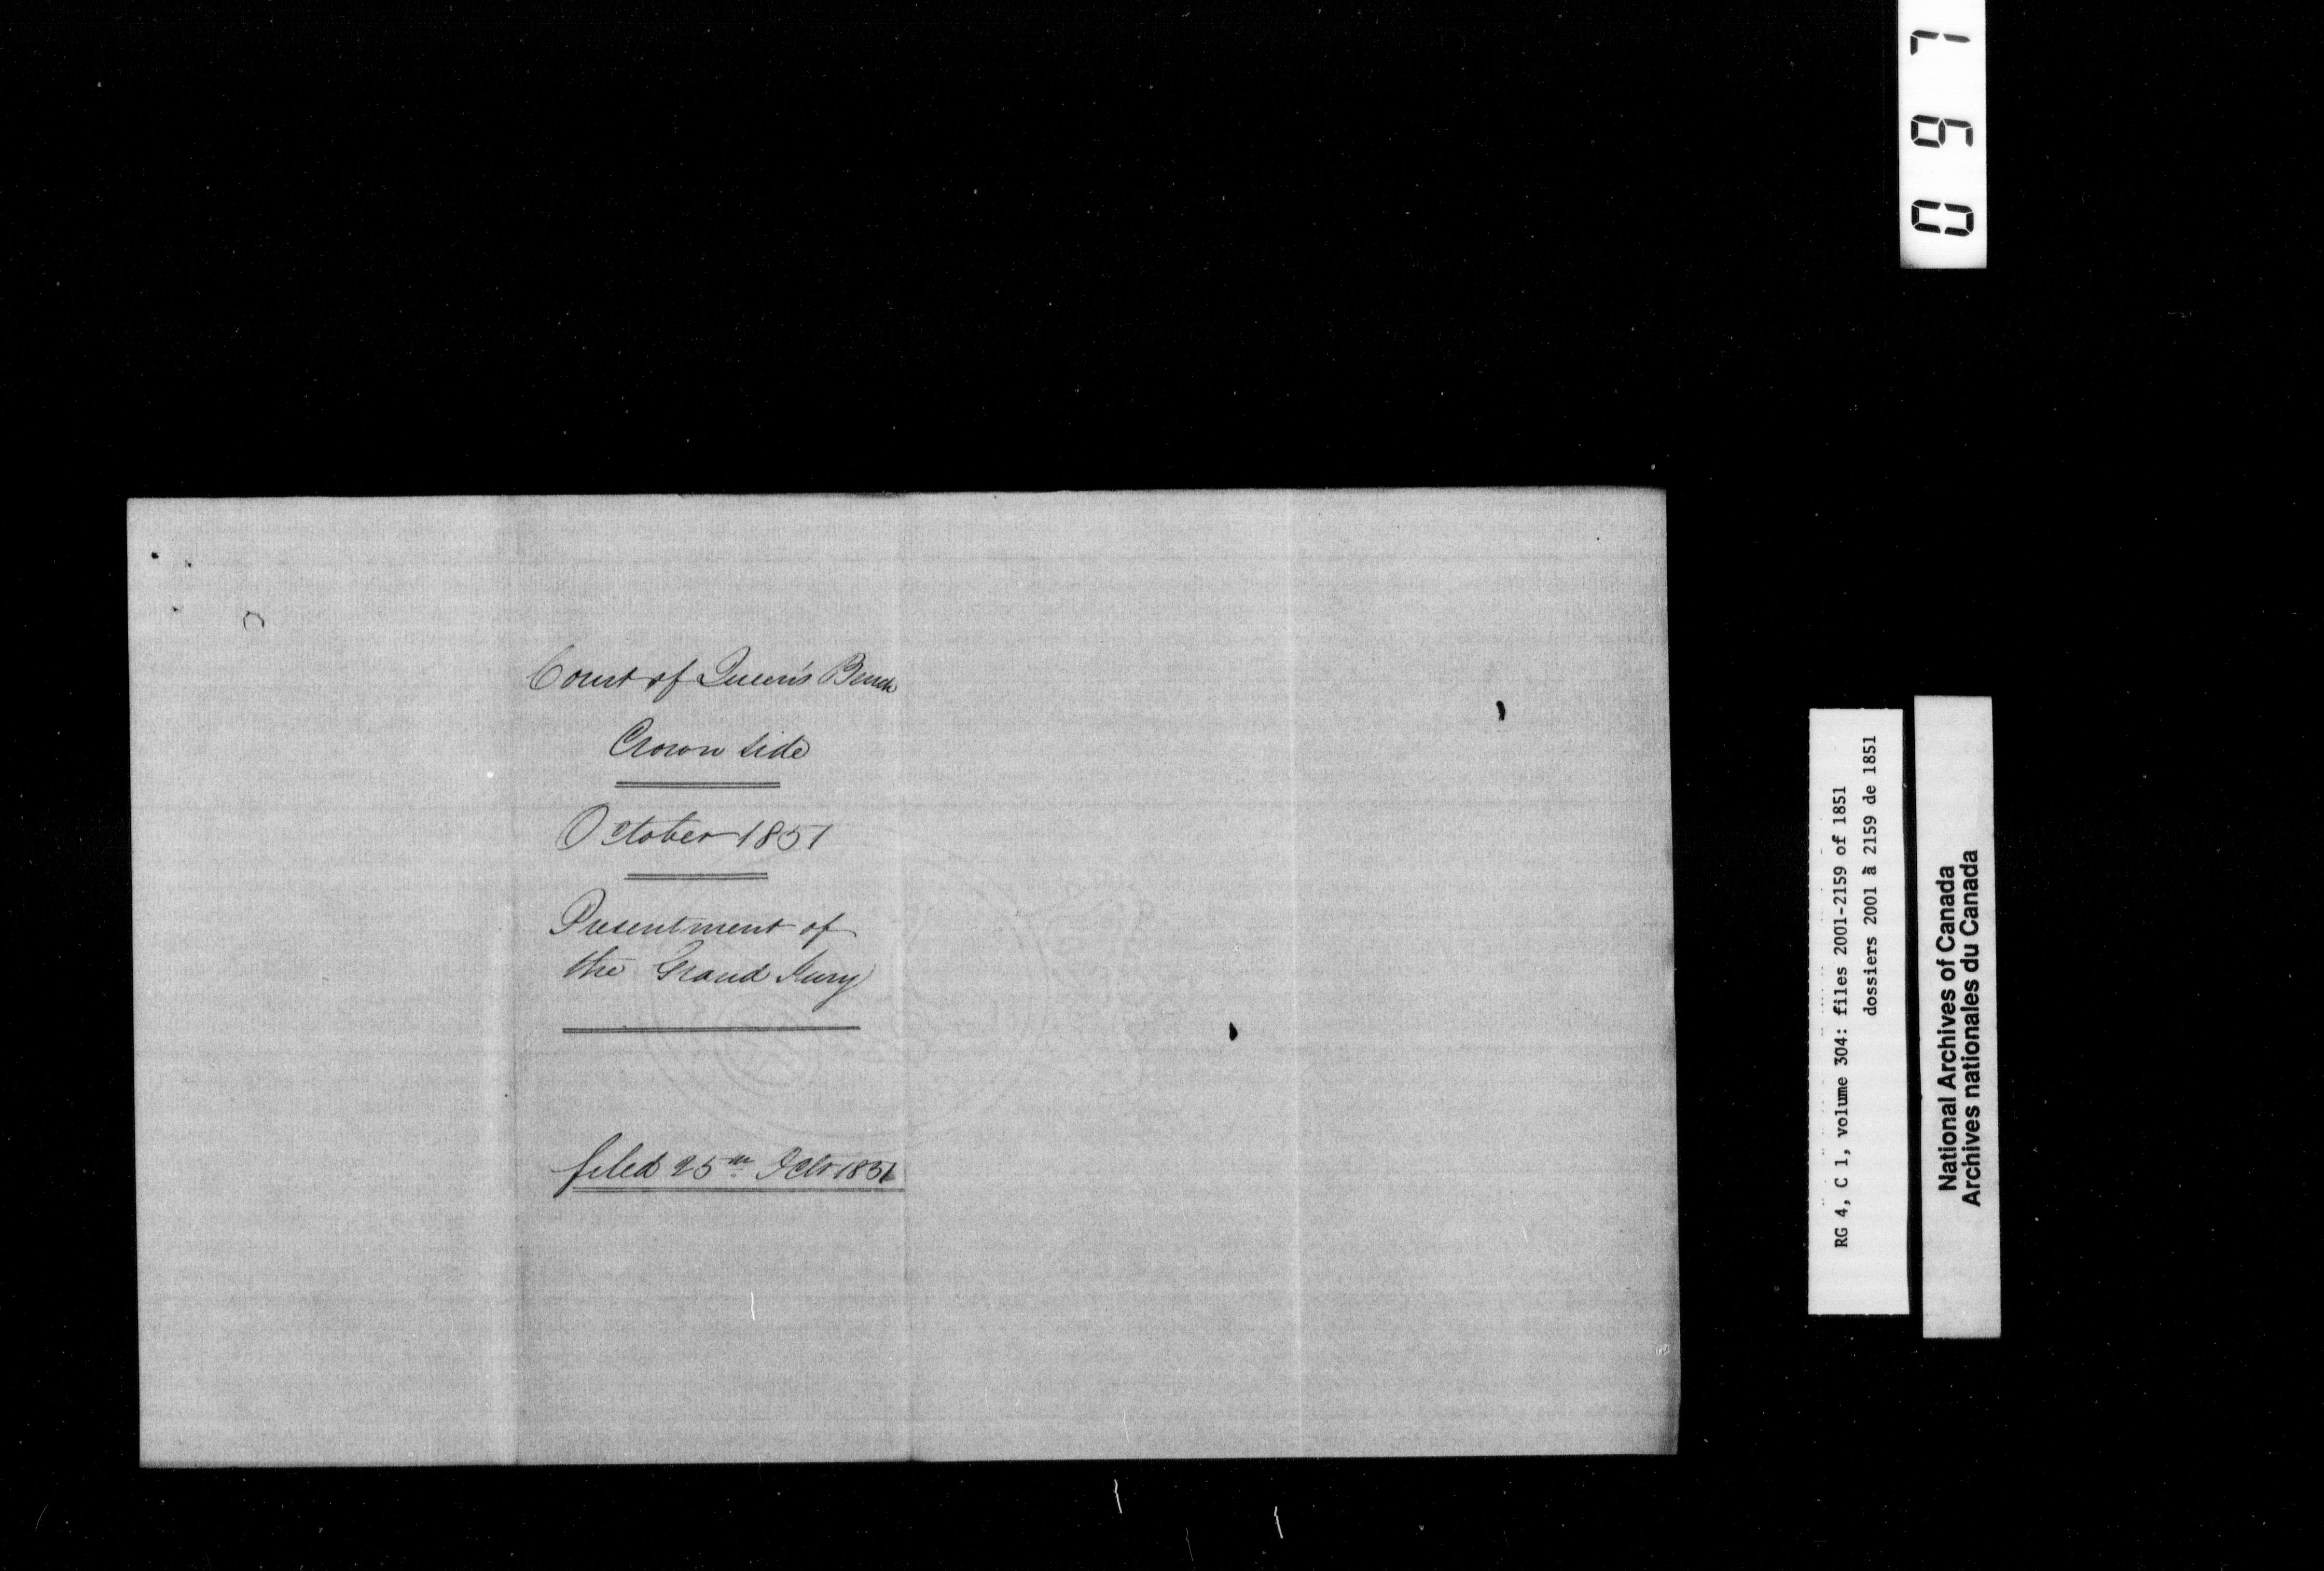 Court of Queen's Bench
Crown side
October 1851
Presentment of
the Grand Jury
filed 25th Octr 1851
097
RG 4, C 1, volume 304: files 2001-2159 of 1851
dossiers 2001 à 2159 de 1851
National Archives of Canada
Archives nationales du Canada